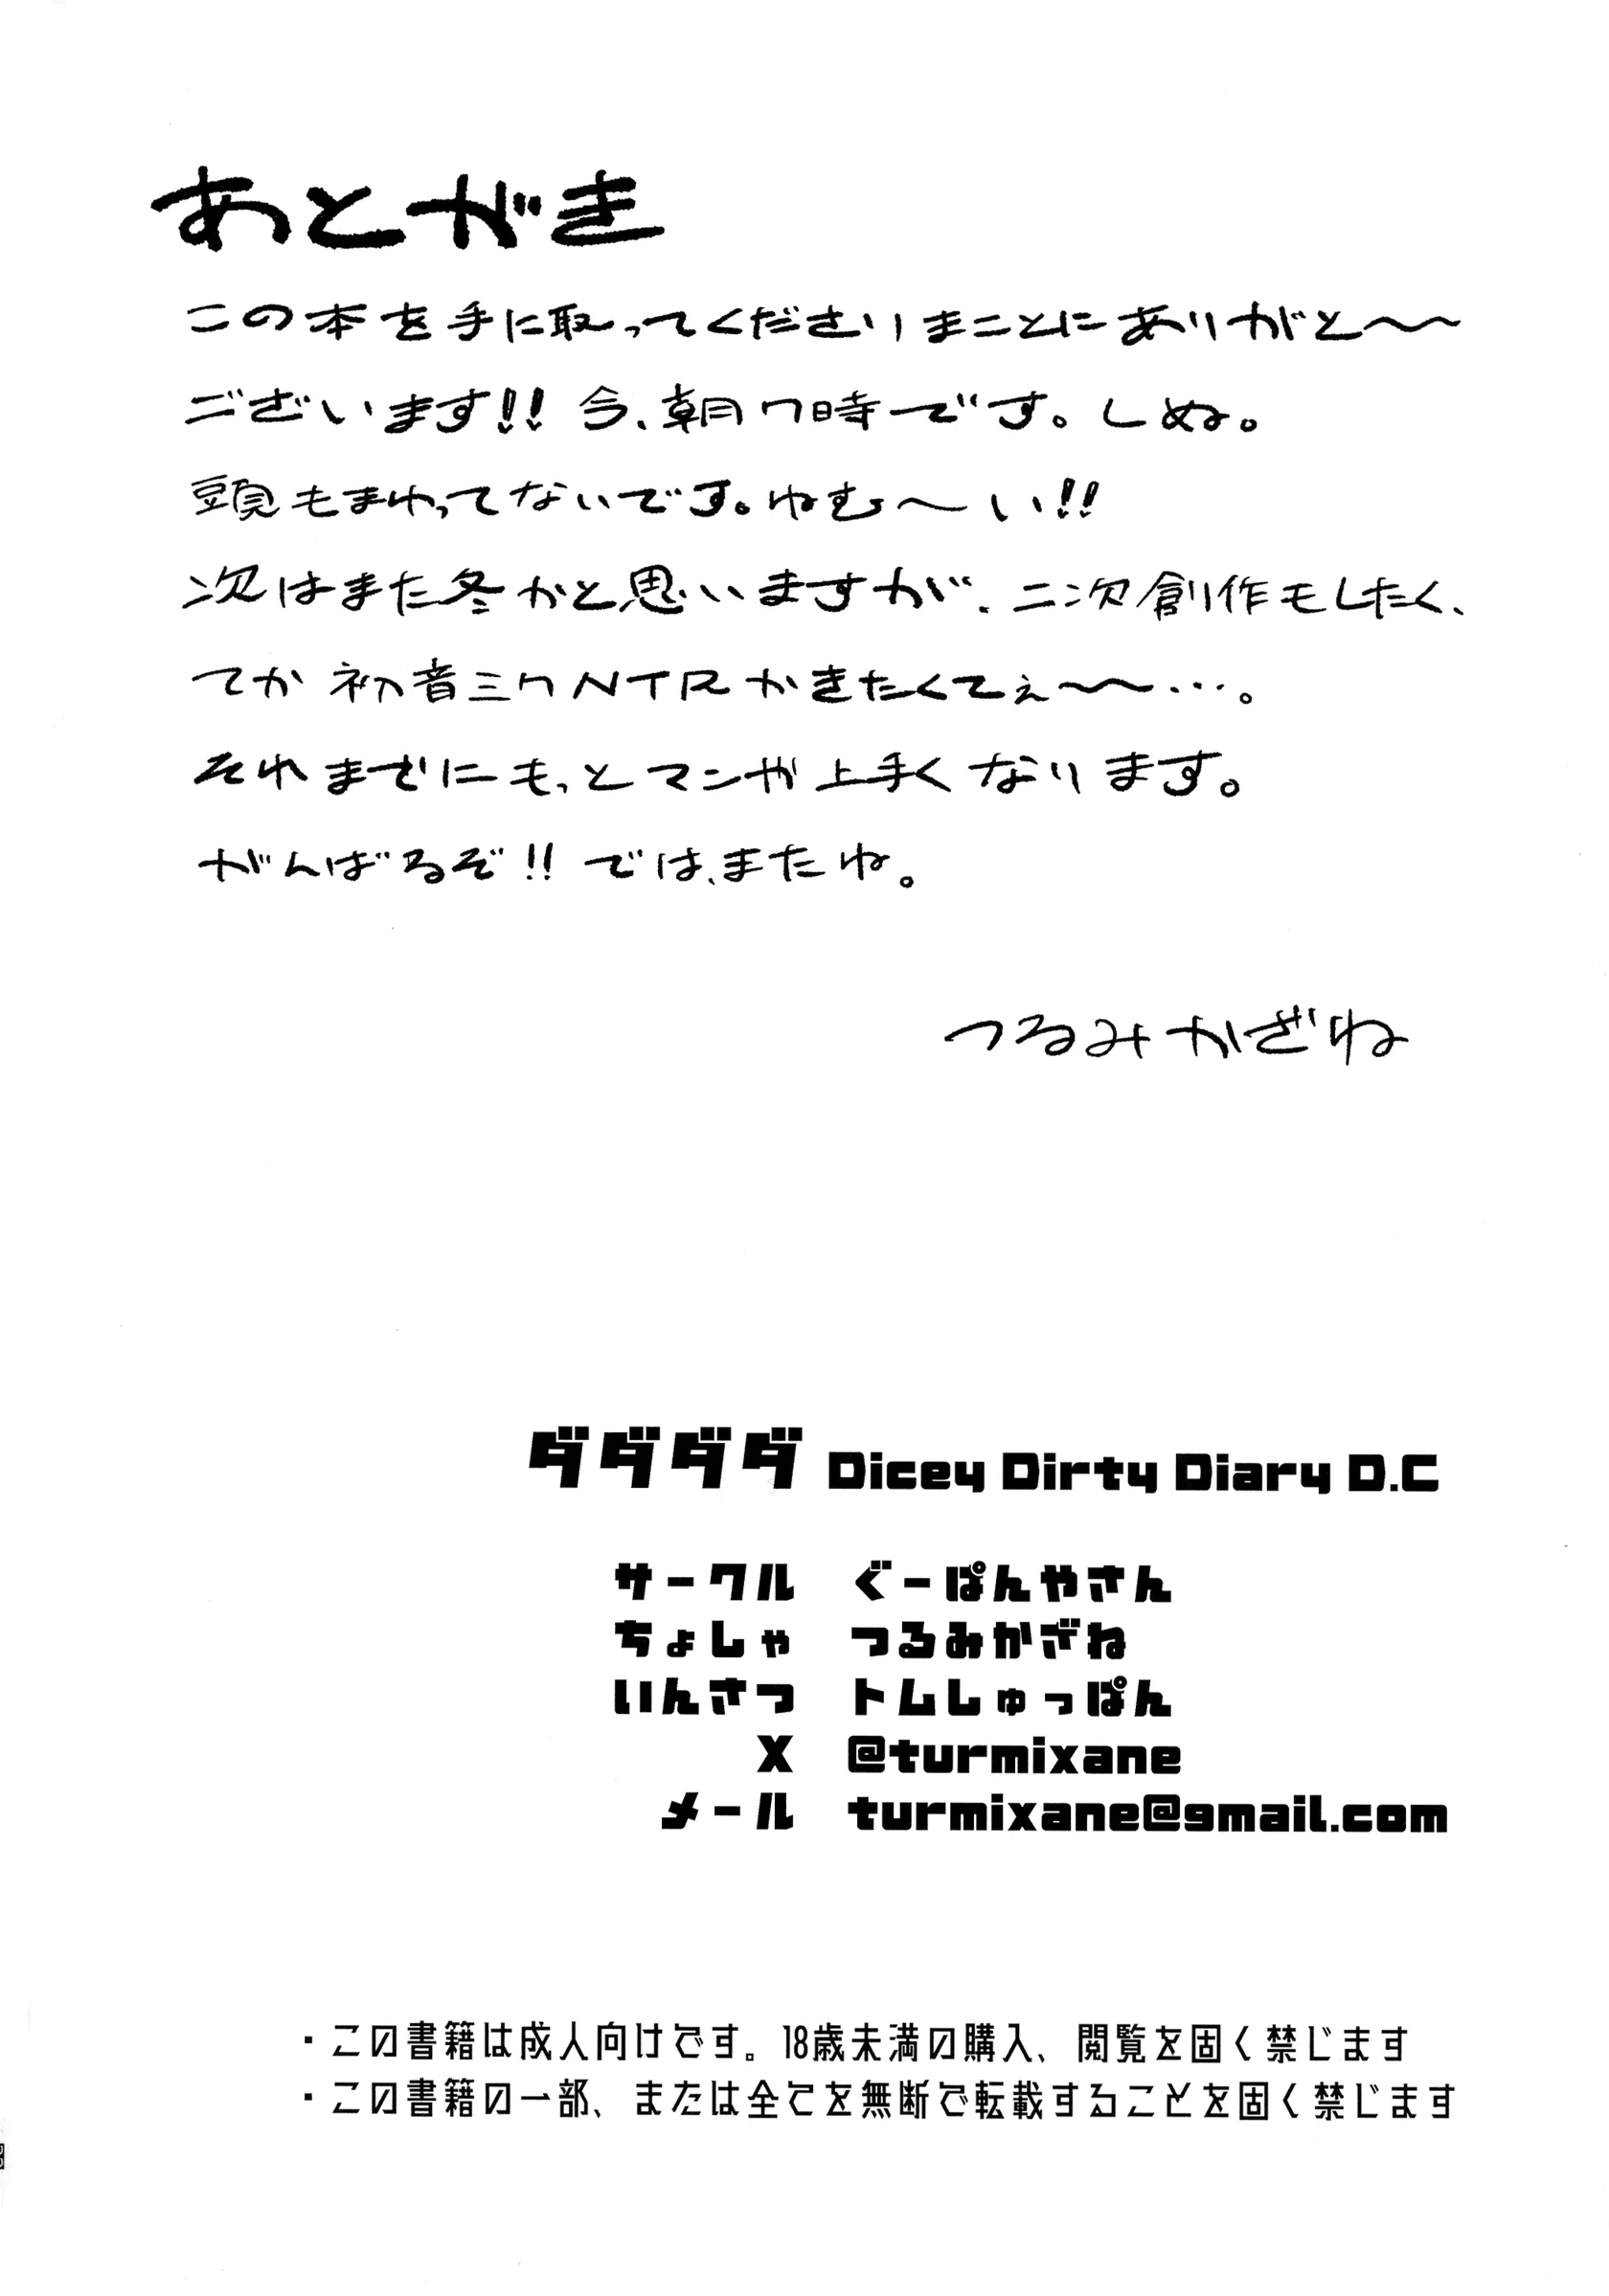 あとがき
この本を手に取ってくださいまことにありがと〜〜
ございます!! 今、朝7時です。しぬ。
頭もまわってないです。ねむ〜い!!
次はまた冬かと思いますが、二次創作もしたく、
てか初音ミクNTRかきたくてぇ〜〜…。
それまでにもっとマンガ上手くなります。
がんばるぞ!! では、またね。
つるみかざね
ダダダダ Dicey Dirty Diary D.C
サークル ぐーぱんやさん
ちょしゃ つるみかざね
いんさつ トムしゅっぱん
X @turmixane
メール turmixane@gmail.com
・この書籍は成人向けです。18歳未満の購入、閲覧を固く禁じます
・この書籍の一部、または全てを無断で転載することを固く禁じます